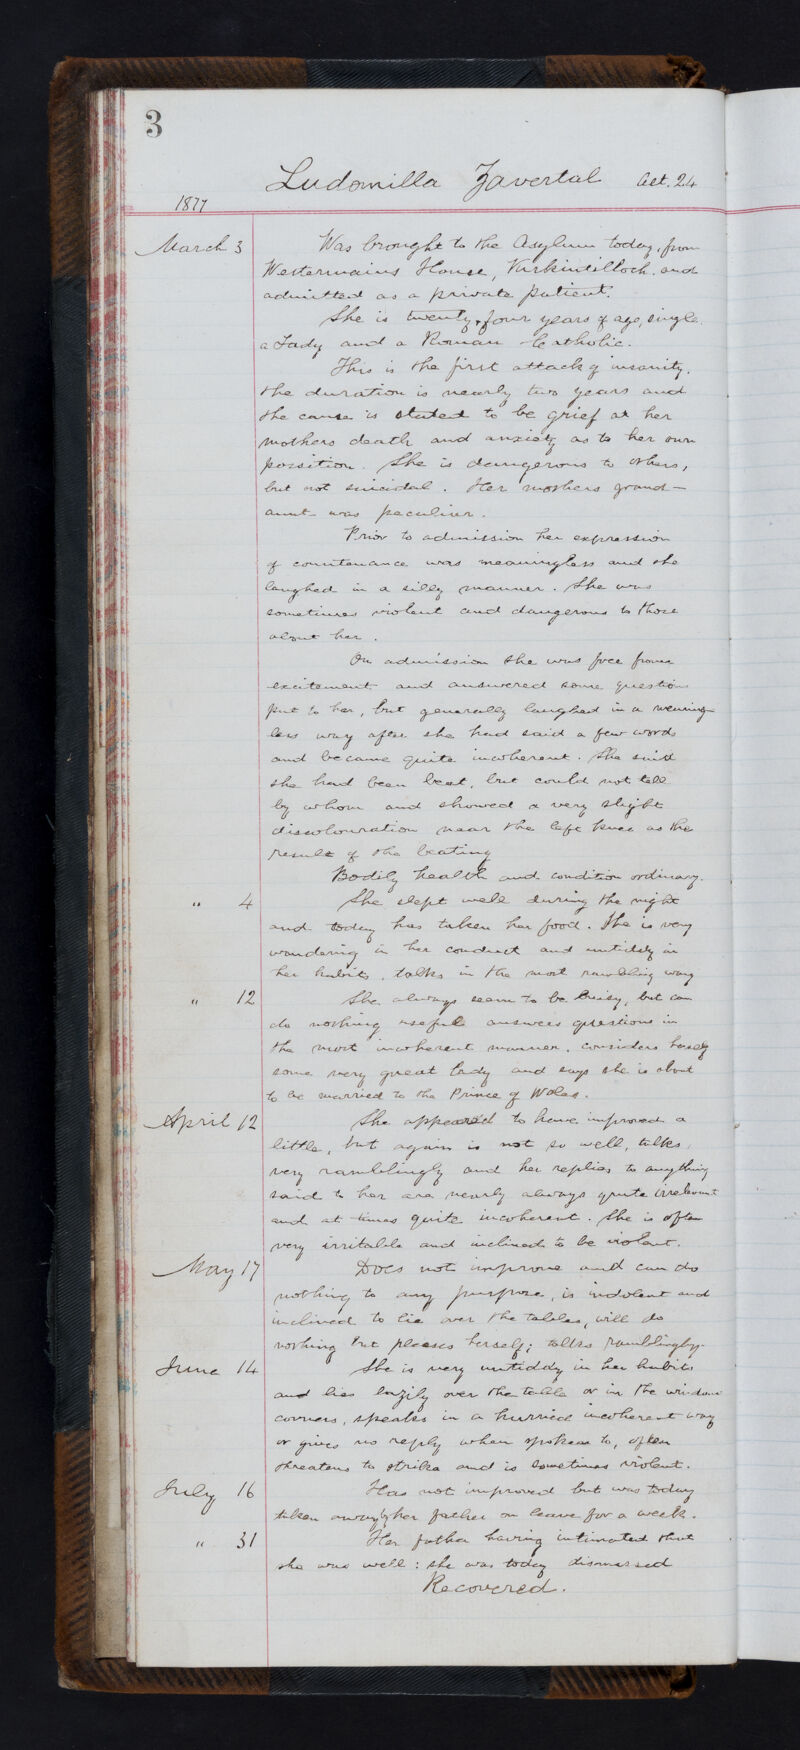 3
Ludomilla Zavertal Aet. 24
1877
March 3 Was brought to the Asylum today, from
Westermains House, Kirkintilloch, and
admitted as a private patient.
She is twenty-four years of age, single
a Lady and a Roman Catholic.
This is the first attack of insanity.
the duration is nearly two years and
the cause is stated to be grief at her
mothers death and anxiety as to her own
possition. She is dangerous to others,
but not suicidal. Her mothers grand-
aunt was peculiar.
Prior to admission her expression
of countenance was meaningless and she
laughed in a silly manner. She was
sometimes violent and dangerous to those
about her.
On admission she was free from
excitement and answered some questions
put to her, but generally laughed in a meaning-
less way after she had said a few words
and became quite incoherent. She said
she had been beat, but could not tell
by whom and showed a very slight
discolouration near the left knee as the
result of the beating
Bodily health and condition ordinary.
" 4 She slept well during the night
and today has taken her food. She is very
wandering in her conduct and untidy in
her habits, talks in the most rambling way
" 12 She always seem to be busy, but can
do nothing useful answers questions in
the most incoherent manner, considers herself
some very great lady and says she is about
to be married to the Prince of Wales.
April 12 She appeared to have improved a
little, but again is not so well, talks
very ramblingly and her replies to anything
said to her are nearly always quite irrelevant
and at times quite incoherent. She is often
very irritable and inclined to be violent.
May 17 Does not improve and can do
nothing to any purpose, is indolent and
inclined to lie over the tables, will do
nothing but pleases herself; talks ramblingly.
June 14 She is very untiddy in her habits
and lies lazily over the table or in the window
corners, speaks in a hurried incoherent way
or gives no reply when spoken to, often
threatens to strike and is sometimes violent.
July 16 Has not improved but was today
taken away by her father on leave for a week.
" 31 Her father having intimated that
she was well: she was today dismissed
Recovered.